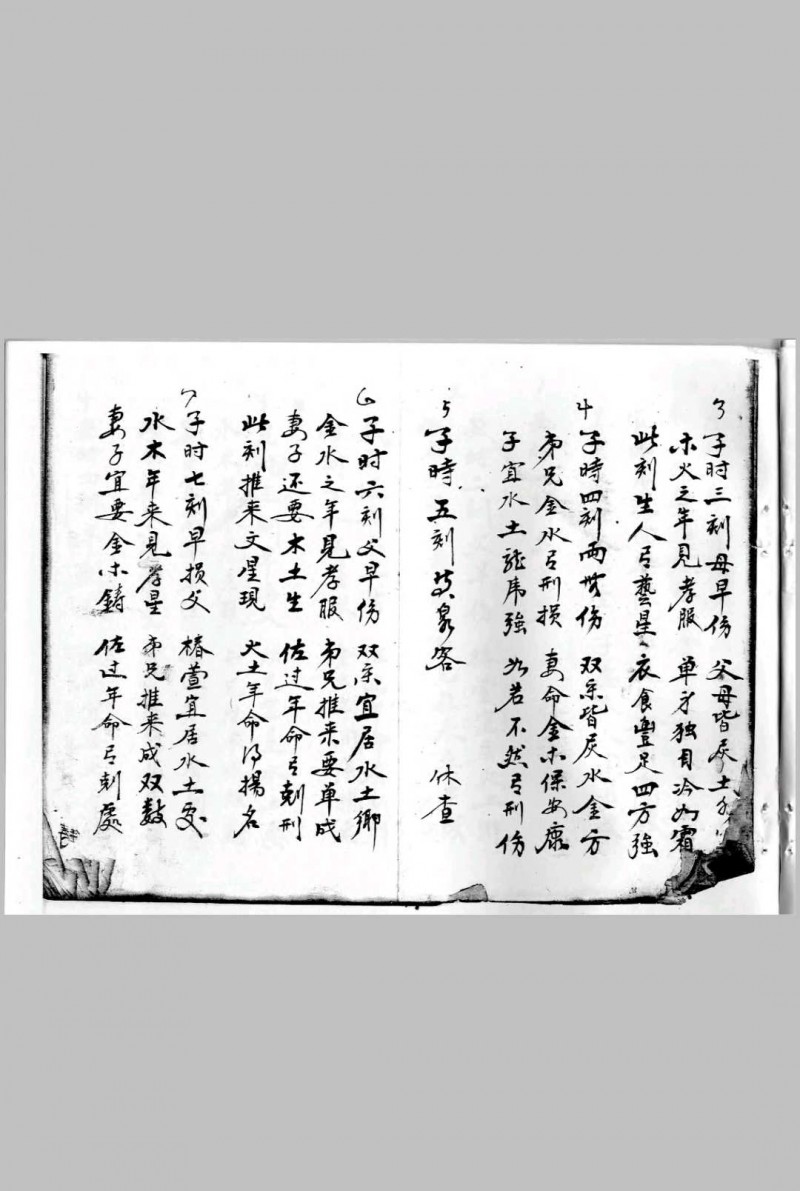 3 子时三刻母早伤 父母皆灰土
木火之年見孝服 單才独自冷如霜
此刻生人弓藝星 衣食豐足四方強
4 子時四刻兩世伤 双亲皆灰水金方
弟兄金水弓刑损 妻命金木保安康
子宜水土龍虎強 如若不然弓刑伤
5 子時五刻 泉客 休查
6 子时六刻父早伤 双亲宜居水土鄉
金水之年見孝服 弟兄推来要单成
妻子还要木土生 佐过年命弓剋刑
此刻推来文星現 火土年命得揚名
7 子时七刻早损父 椿萱宜居水土
水木年来見孝星 弟兄推来成双数
妻子宜要金木鑄 佐过年命弓剋處